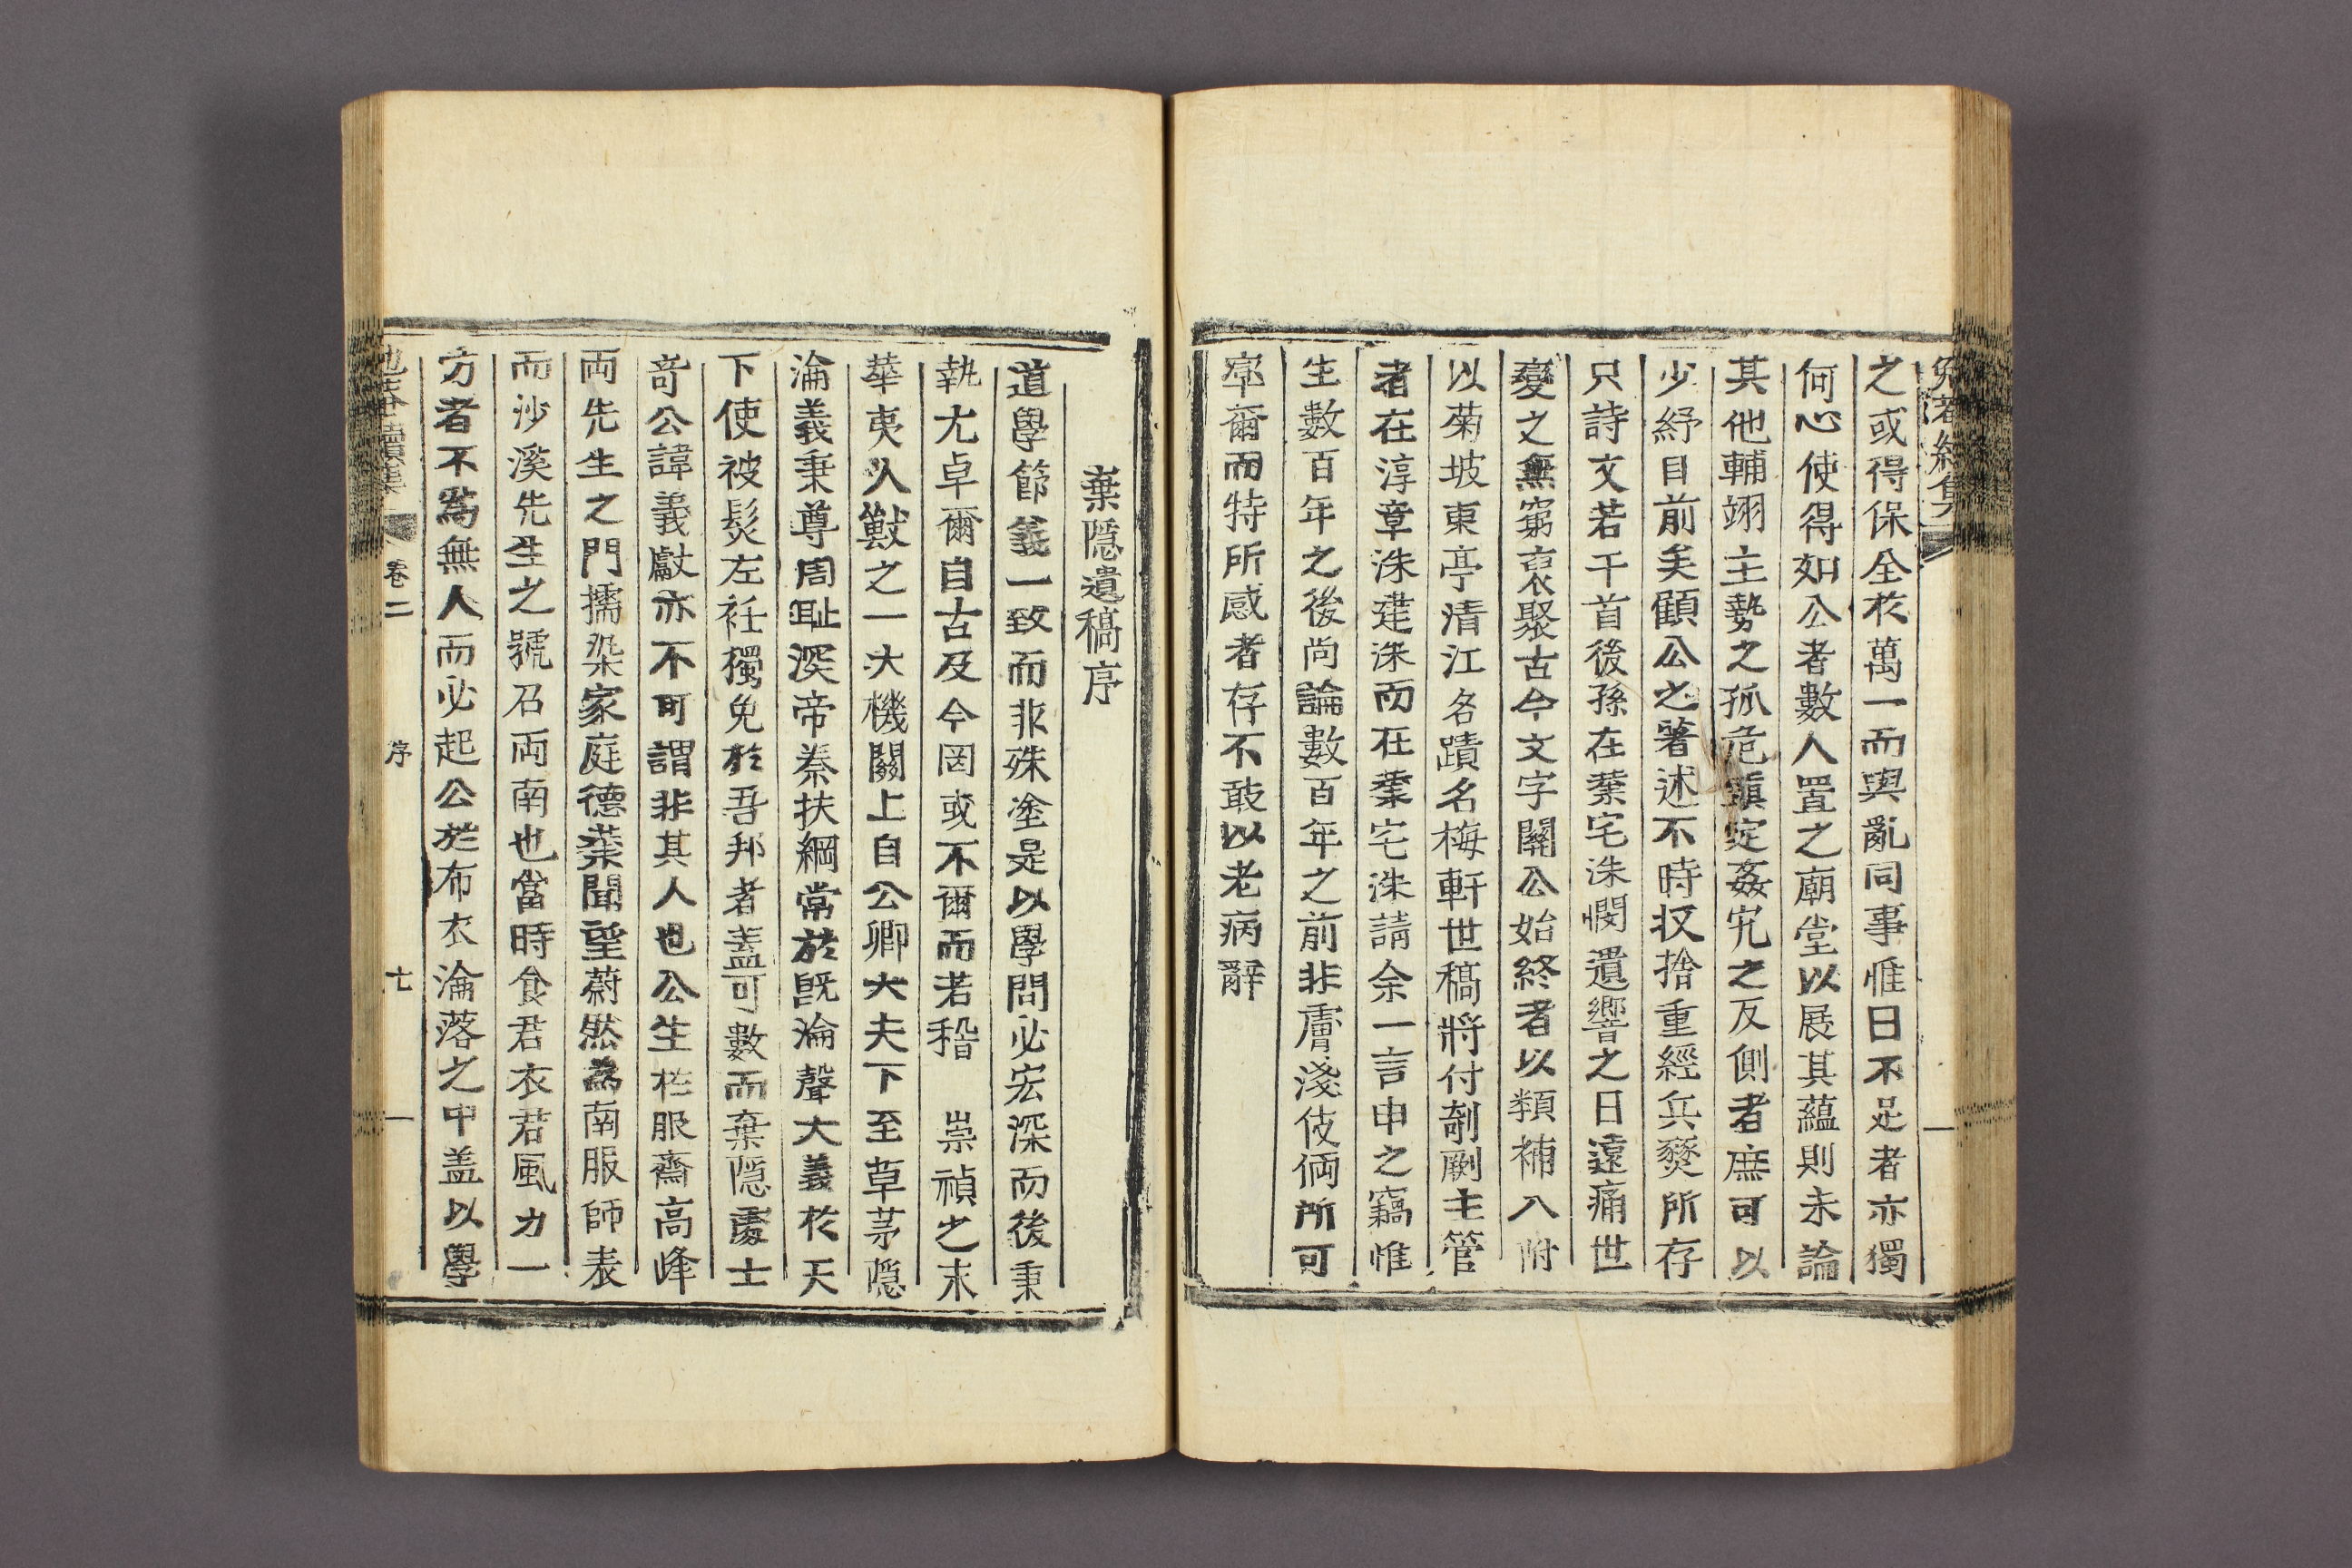 之或得保全於萬一而與亂同事惟日不足者亦獨
何心使得如公者數人置之廟堂以展其蘊則未論
其他輔翊主勢之孤危鎭定姦宄之反側者庶可以
少紓目前矣顧公之著述不時収拾重經兵燹所存
只詩文若干首後孫在業宅洙憫遺響之日遠痛世
變之無窮裒聚古今文字關公始終者以類補入附
以菊坡東亭淸江名蹟名梅軒世稿將付剞劂主管
者在淳章洙建洙而在業宅洙請余一言申之竊惟
生數百年之後尚論數百年之前非膚淺伎倆所可
率爾而特所感者存不敢以老病辭
棄隱遺稿序
道學節義一致而非殊塗是以學問必宏深而後秉
執尤卓爾自古及今罔或不爾而若稽 崇禎之末
華夷人獸之一大機關上自公卿大夫下至草茅隱
淪義秉尊周耻深帝秦扶綱常於旣淪聲大義於天
下使被髮左衽獨免於吾邦者盖可數而棄隱處士
奇公諱義獻亦不可謂非其人也公生於服齋高峰
両先生之門擩染家庭德業聞望蔚然為南服師表
而沙溪先生之號召両南也當時食君衣君風力一
方者不為無人而必起公於布衣淪落之中盖以學
續集 卷二 序 七 一